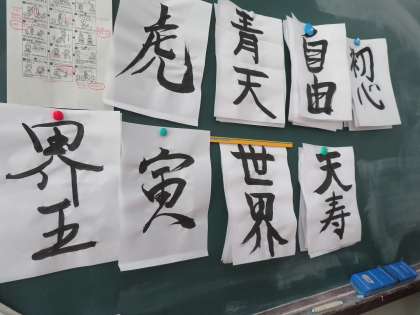 虎
青天
自由
初心
界王
寅
世界
天寿